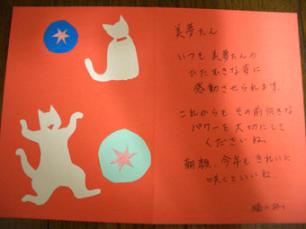 美夢たん
いつも美夢たんの
ひたむきな姿に
感動させられます。
これからもその前向きな
パワーを大切にして
くださいね。
朝顔、今年もきれいに
咲くといいね。